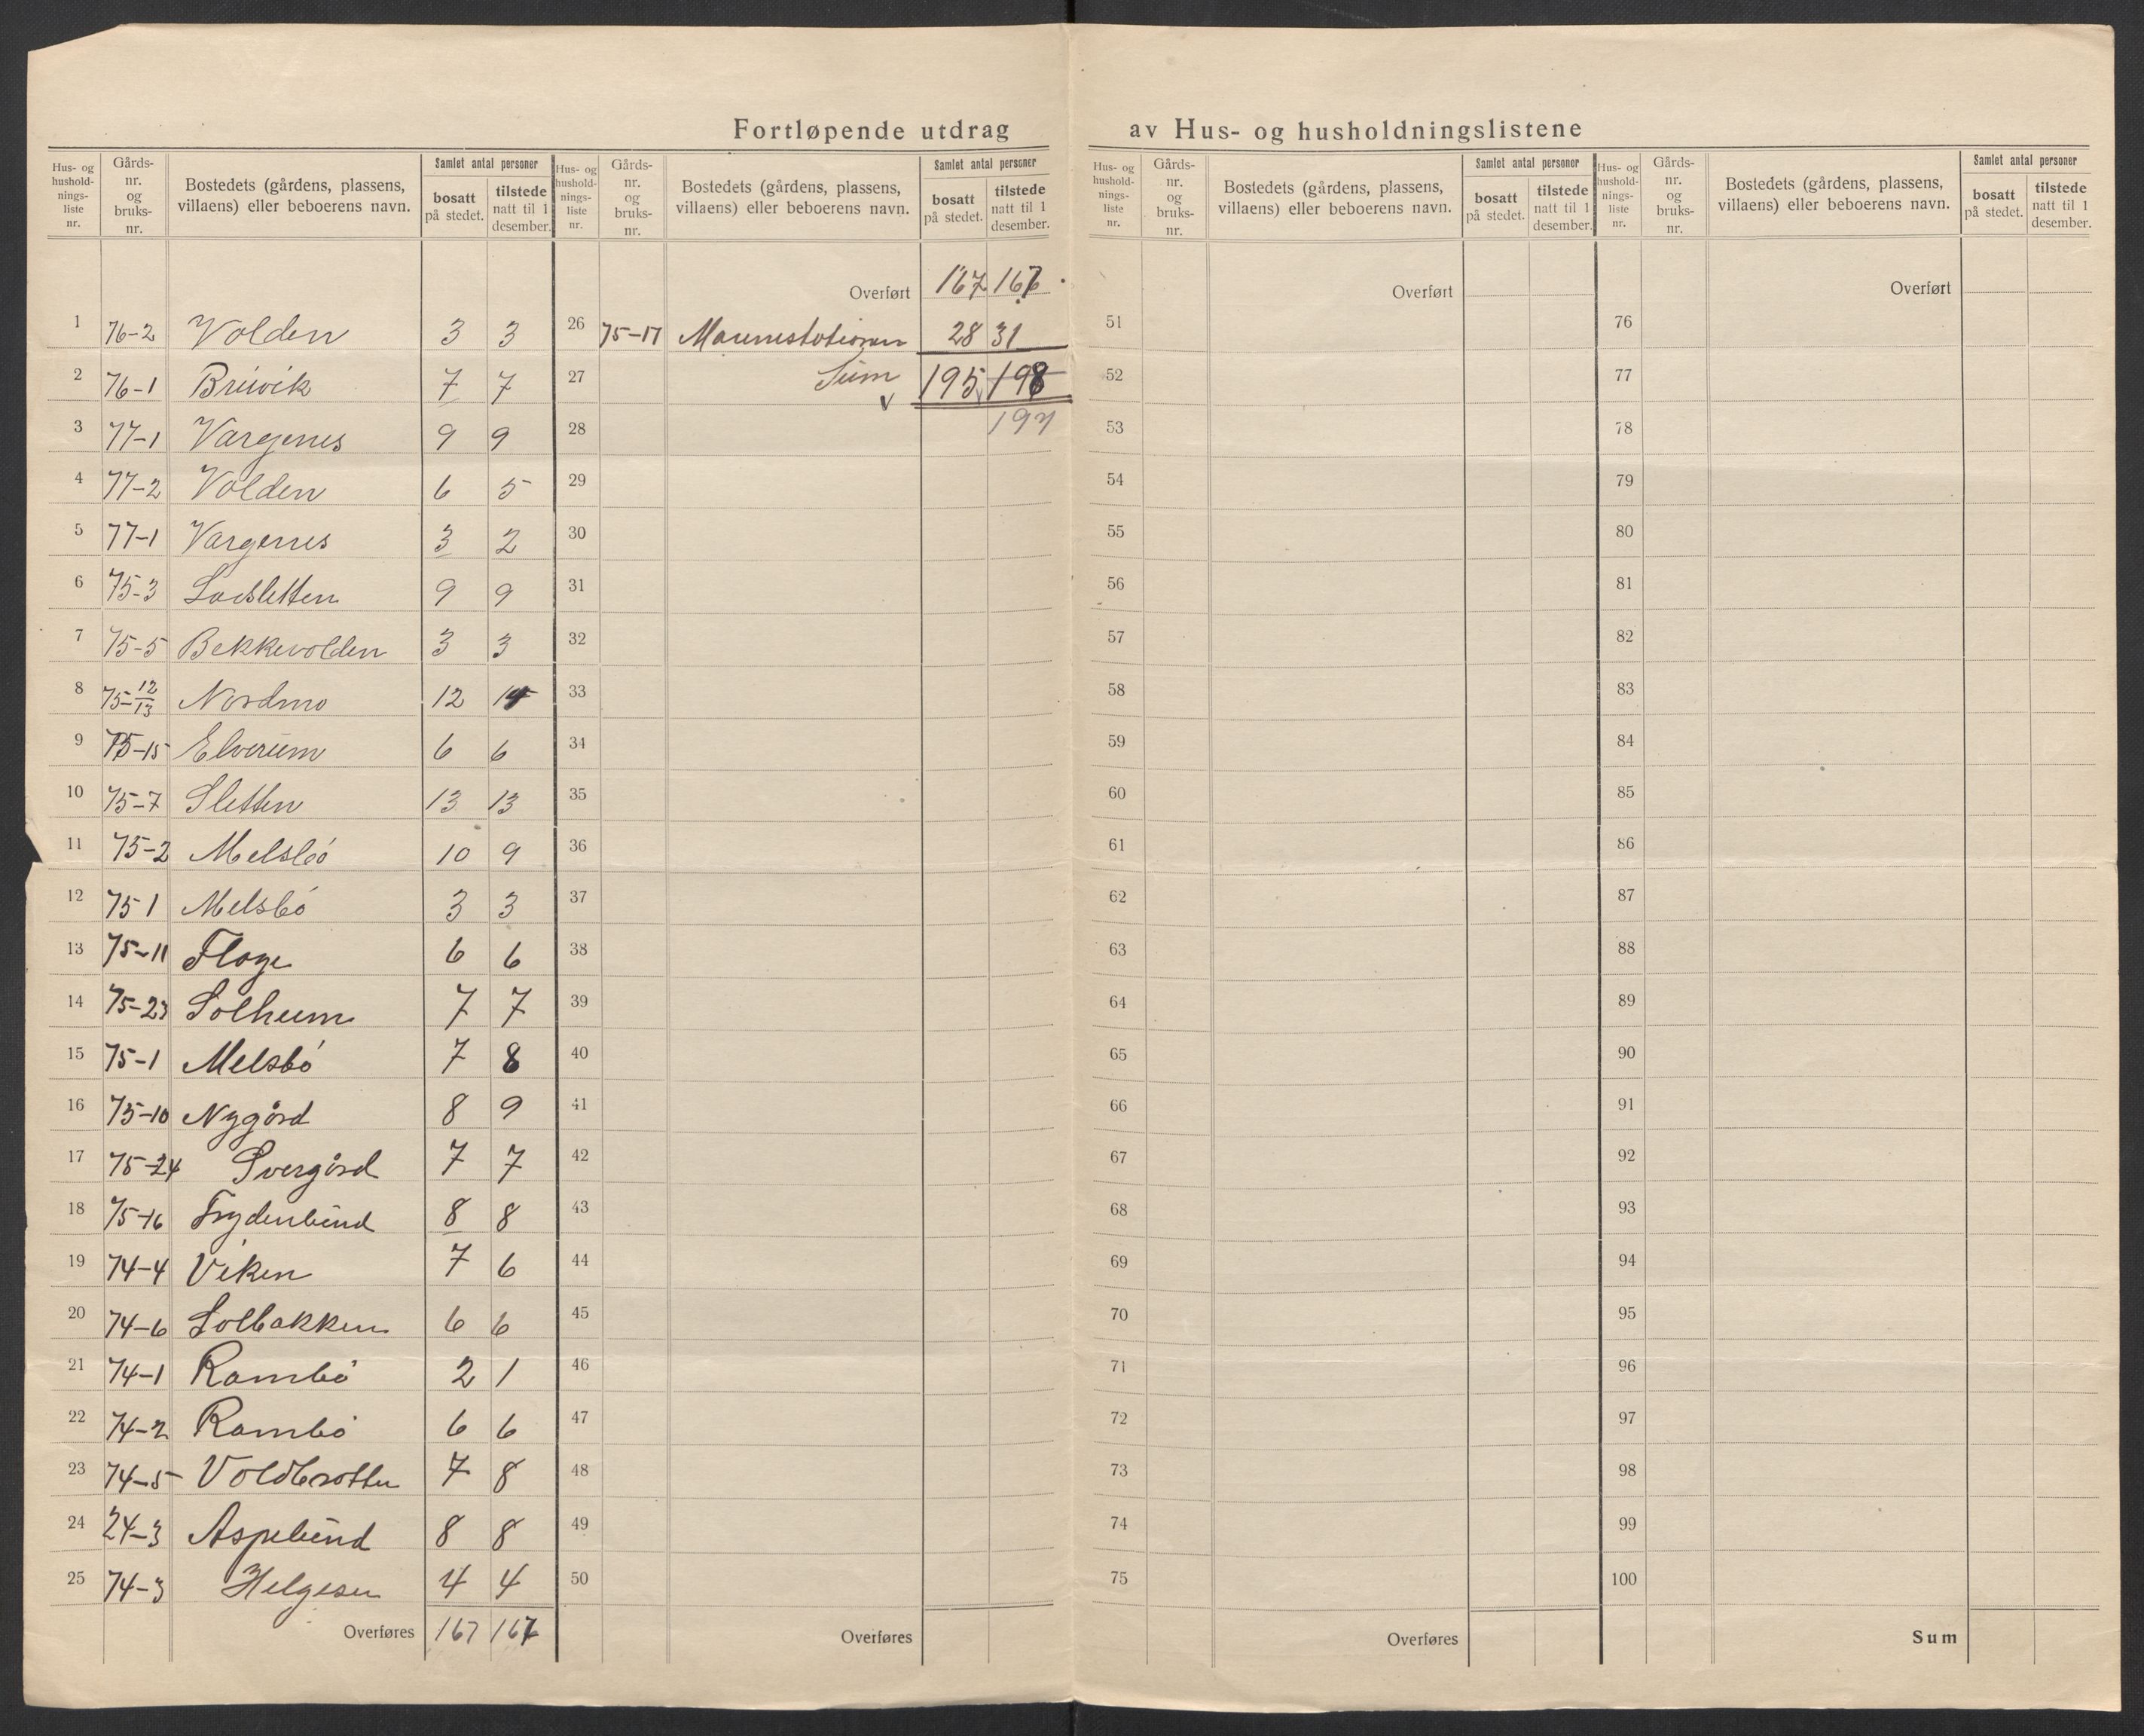 Fortløpende utdrag av Hus- og husholdningslistene
Hus- og hushold-nings-liste nr. Gårds-nr. og bruks-nr. Bostedets (gårdens, plassens, villaens) eller beboerens navn. Samlet antal personer bosatt på stedet. tilstede natt til 1 desember.
1 76-2 Volden 3 3
2 76-1 Breivik 7 7
3 77-1 Vargenes 9 9
4 77-2 Volden 6 5
5 77-1 Vargenes 3 2
6 75-3 9 9
7 75-5 Bekkevolden 3 3
8 75-12/13 Nordmo 12
9 75-15 Elverum 6 6
10 75-7 Sletten 13 13
11 75-2 Melsbó 10 9
12 75 1 Melsbó 3 3
13 75-11 6 6
14 75-23 Solheim 7 7
15 75-1 Melsbó 7 8
16 75-10 Nygård 8 9
17 75-24 7 7
18 75-16 Frydenlund 8 8
19 74-4 Viken 7 6
20 74-6 Solbakken 6 6
21 74-1 Rambó 2 1
22 74-2 Rambó 6 6
23 74-5 Voldbrotten 7 8
24 24-3 Aspelund 8 8
25 74-3 Helgesen 4 4
Overføres 167
Hus- og hushold-nings-liste nr. Gårds-nr. og bruks-nr. Bostedets (gårdens, plassens, villaens) eller beboerens navn. Samlet antal personer bosatt på stedet. tilstede natt til 1 desember.
Overført 167
26 75-17 28 31
27 Sum 195 198
28 197
29
30
31
32
33
34
35
36
37
38
39
40
41
42
43
44
45
46
47
48
49
50
Overføres
Hus- og hushold-nings-liste nr. Gårds-nr. og bruks-nr. Bostedets (gårdens, plassens, villaens) eller beboerens navn. Samlet antal personer bosatt på stedet. tilstede natt til 1 desember.
Overført
51
52
53
54
55
56
57
58
59
60
61
62
63
64
65
66
67
68
69
70
71
72
73
74
75
Overføres
Hus- og hushold-nings-liste nr. Gårds-nr. og bruks-nr. Bostedets (gårdens, plassens, villaens) eller beboerens navn. Samlet antal personer bosatt på stedet. tilstede natt til 1 desember.
Overført
76
77
78
79
80
81
82
83
84
85
86
87
88
89
90
91
92
93
94
95
96
97
98
99
100
Sum